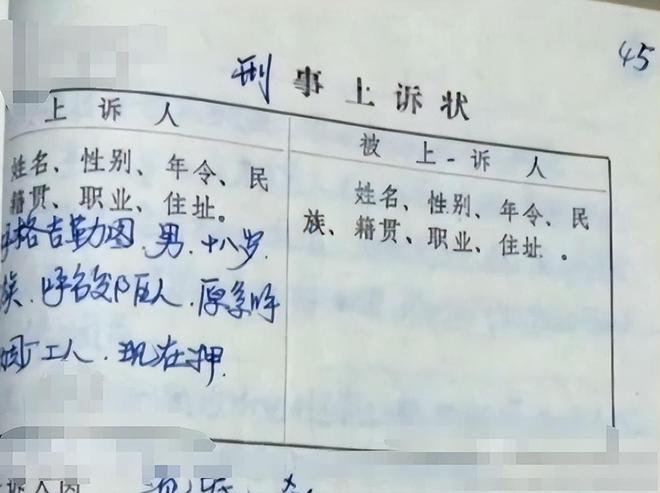 45
刑事上诉状
上诉人
姓名、性别、年令、民
籍贯、职业、住址。
格吉勒图、男、十八岁.
族.呼
人.原系呼
厂工人.现在押.
被上-诉人
姓名、性别、年令、民
族、籍贯、职业、住址。